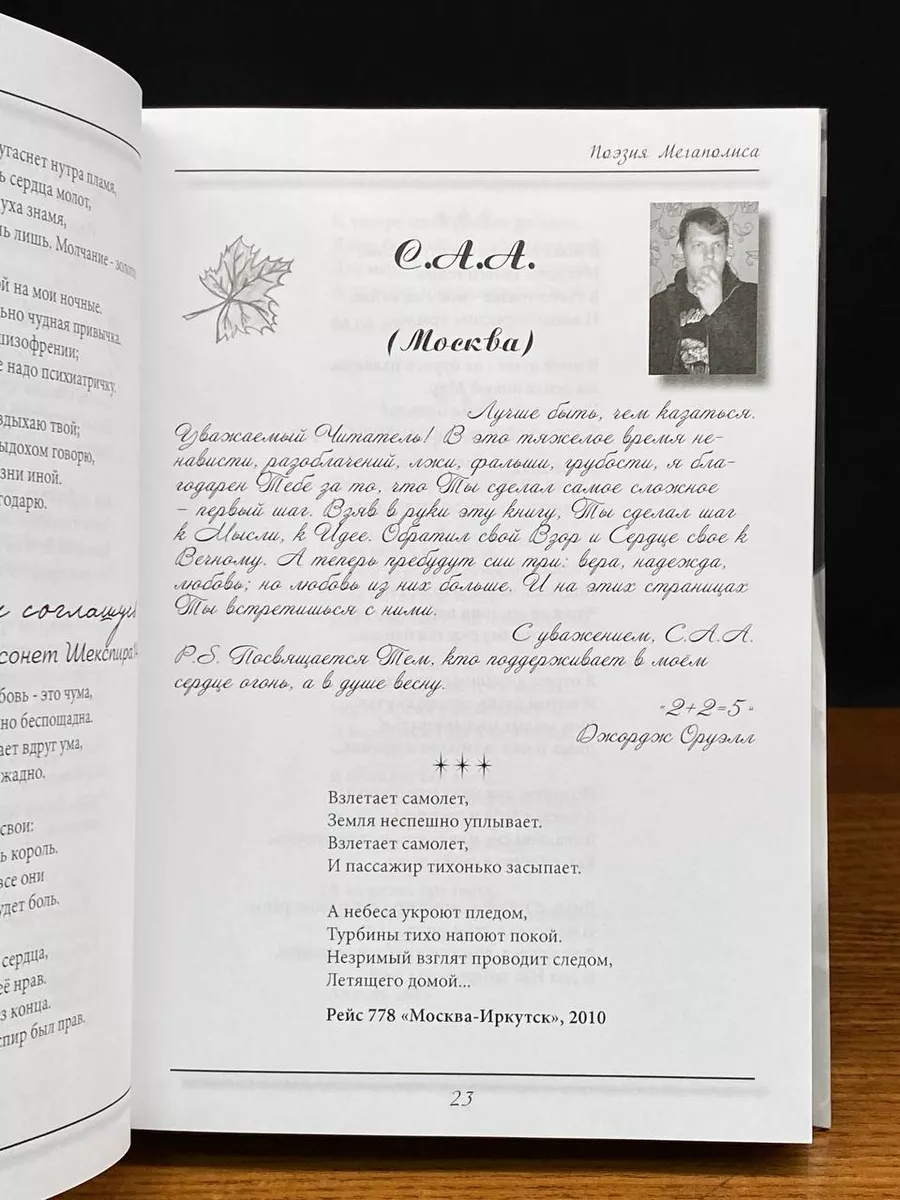 угаснет нутра пламя,
сердца молот,
духа знамя,
лишь. Молчание - золото
на мои ночные.
чудная привычка.
шизофрении;
надо психиатричку.
вздыхаю твой;
выдохом говорю,
иной.
соглашусь
сонет Шекспира
- это чума,
беспощадна.
вдруг ума,
жадно.
свои:
король.
все они
будет боль.
сердца,
её нрав.
конца.
был прав.
Поэзия Мегаполиса
С.А.А.
(Москва)
Лучше быть, чем казаться.
Уважаемый Читатель! В это тяжелое время не-
нависти, разоблачений, лжи, фальши, грубости, я бла-
годарен Тебе за то, что Ты сделал самое сложное
– первый шаг. Взяв в руки эту книгу, Ты сделал шаг
к Мысли, к Идее. Обратил свой Взор и Сердце свое к
Вечному. А теперь пребудут сии три: вера, надежда,
любовь; но любовь из них больше. И на этих страницах
Ты встретишься с ними.
С уважением, С.А.А.
P.S. Посвящается Тем, кто поддерживает в моём
сердце огонь, а в душе весну.
«2+2=5»
Джордж Оруэлл
Взлетает самолет,
Земля неспешно уплывает.
Взлетает самолет,
И пассажир тихонько засыпает.
А небеса укроют пледом,
Турбины тихо напоют покой.
Незримый взгляд проводит следом,
Летящего домой...
Рейс 778 «Москва-Иркутск», 2010
23